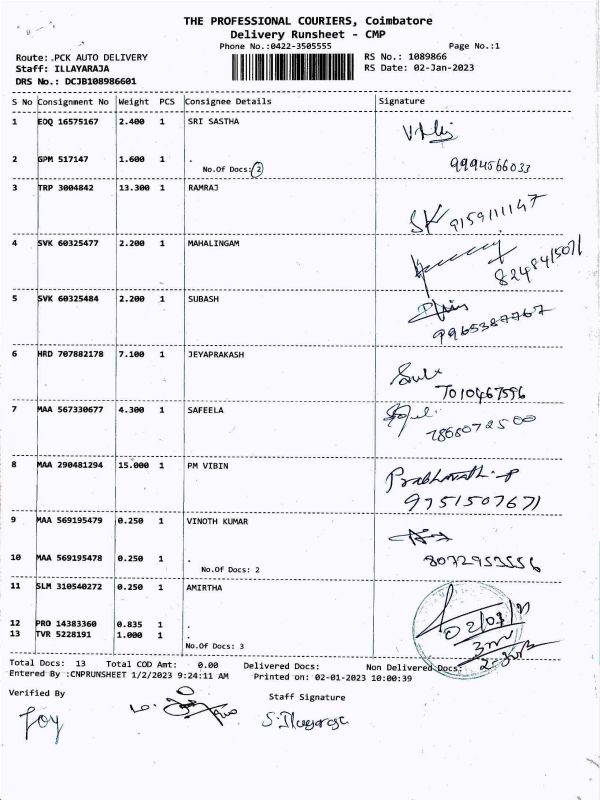 THE PROFESSIONAL COURIERS, Coimbatore
Delivery Runsheet - CMP
Phone No.:0422-3505555 Page No.:1
Route: .PCK AUTO DELIVERY RS No.: 1089866
Staff: ILLAYARAJA RS Date: 02-Jan-2023
DRS No.: DCJB108986601
S No Consignment No Weight PCS Consignee Details Signature
1 EOQ 16575167 2.400 1 SRI SASTHA
2 GPM 517147 1.600 1 .
No.Of Docs: 2 9994566033
3 TRP 3004842 13.300 1 RAMRAJ
SK 9159111147
4 SVK 60325477 2.200 1 MAHALINGAM
8248415071
5 SVK 60325484 2.200 1 SUBASH
9965387767
6 HRD 707882178 7.100 1 JEYAPRAKASH
7010467596
7 MAA 567330677 4.300 1 SAFEELA
7868072500
8 MAA 290481294 15.000 1 PM VIBIN
Prabhavathi. P
9751507671
9 MAA 569195479 0.250 1 VINOTH KUMAR
10 MAA 569195478 0.250 1 .
No.Of Docs: 2 8072953556
11 SLM 310540272 0.250 1 AMIRTHA
12 PRO 14383360 0.835 1 .
13 TVR 5228191 1.000 1 .
No.Of Docs: 3
Total Docs: 13 Total COD Amt: 0.00 Delivered Docs: Non Delivered Docs:
Entered By :CNPRUNSHEET 1/2/2023 9:24:11 AM Printed on: 02-01-2023 10:00:39
Verified By Staff Signature
Joy S. Illayaraja